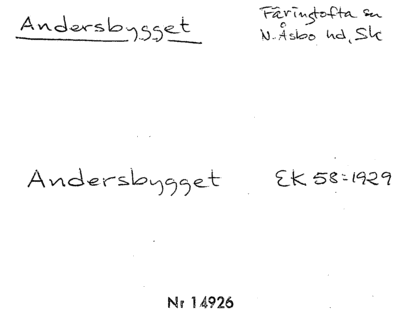 Andersbygget
Färingtofta sn
N. Åsbo hd, Sk
Andersbygget EK 58=1929
Nr 14926